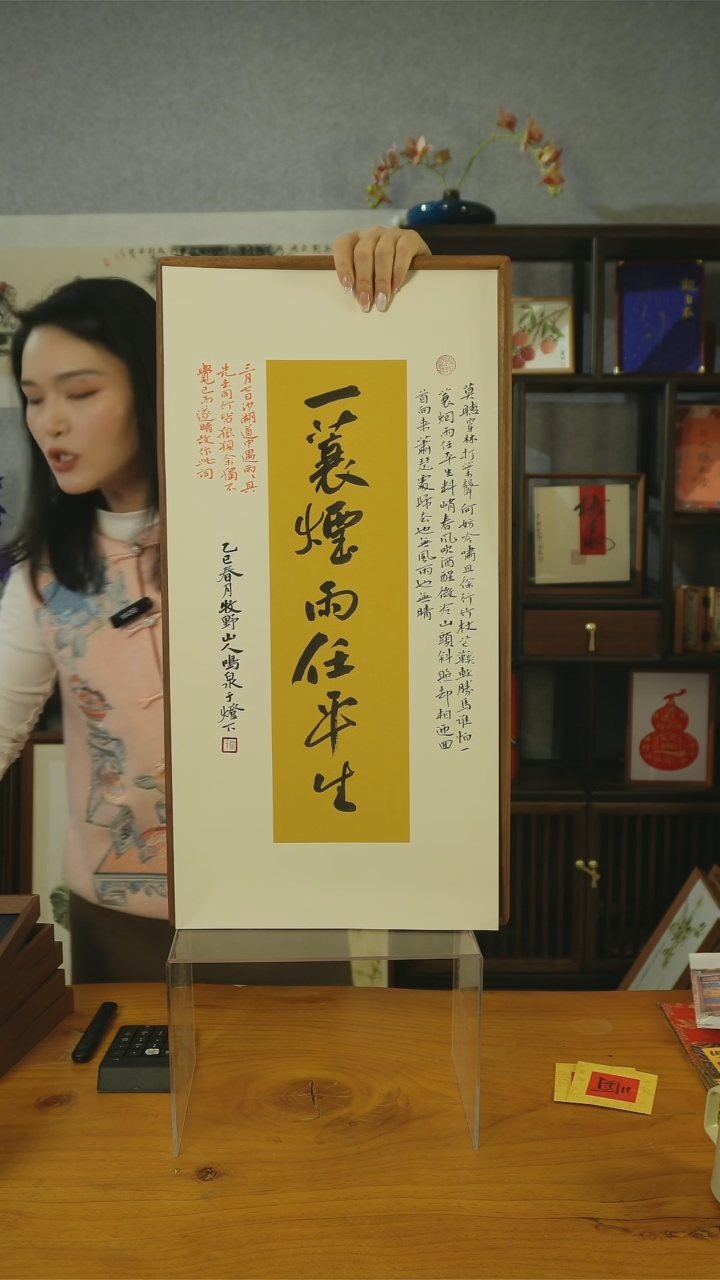 莫聽穿林打葉聲何妨吟嘯且徐行竹杖芒鞋輕勝馬誰怕一
蓑烟雨任平生料峭春風吹酒醒微冷山頭斜照却相迎回
首向来蕭瑟處歸去也無風雨也無晴
一蓑煙雨任平生
三月七日沙湖道中遇雨、具
先去同行皆狼狽余獨不
覺已而遂晴故作此詞
乙巳春月牧野山人鳴泉于燈下